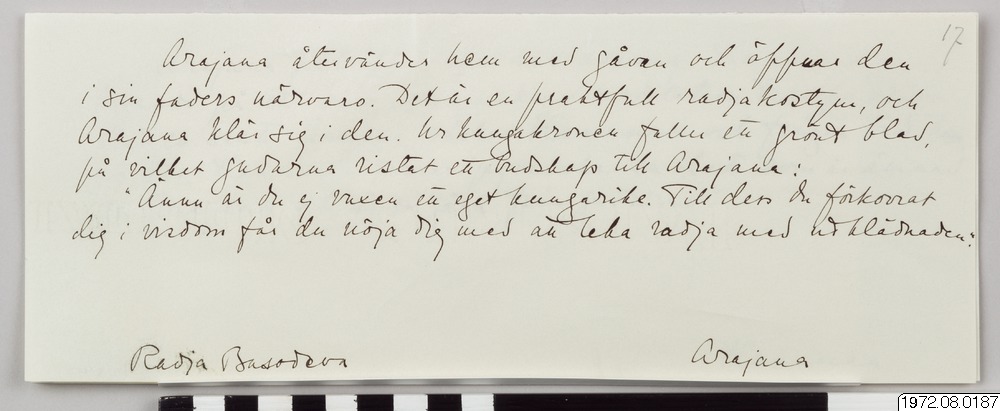 17
Arajana återvänder hem med gåvan och öppnar den
i sin faders närvaro. Det är en praktfull radjakostym, och
Arajana klär sig i den. Ur kungakronen faller ett grönt blad,
på vilket gudarna ristat ett budskap till Arajana:
"Ännu är du ej vuxen ett eget kungarike. Till dess du förkovrat
dig i visdom får du nöja dig med att leka radja med utklädnaden."
Radja Basodeva
Arajana
1972.08.0187